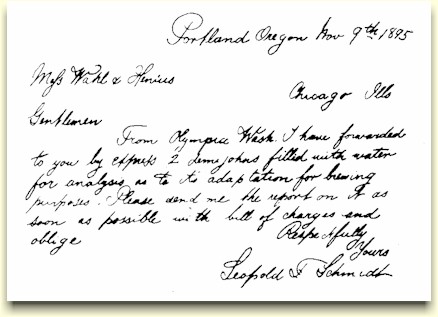 Portland Oregon Nov 9th 1895
Mess Wahl & Henius
Chicago Ills
Gentlemen
From Olympia Wash. I have forwarded
to you by express 2 demijohns filled with water
for analysis as to its adaptation for brewing
purposes. Please send me the report on it as
soon as possible with bill of charges and
oblige
Respectfully
Yours
Leopold F Schmidt